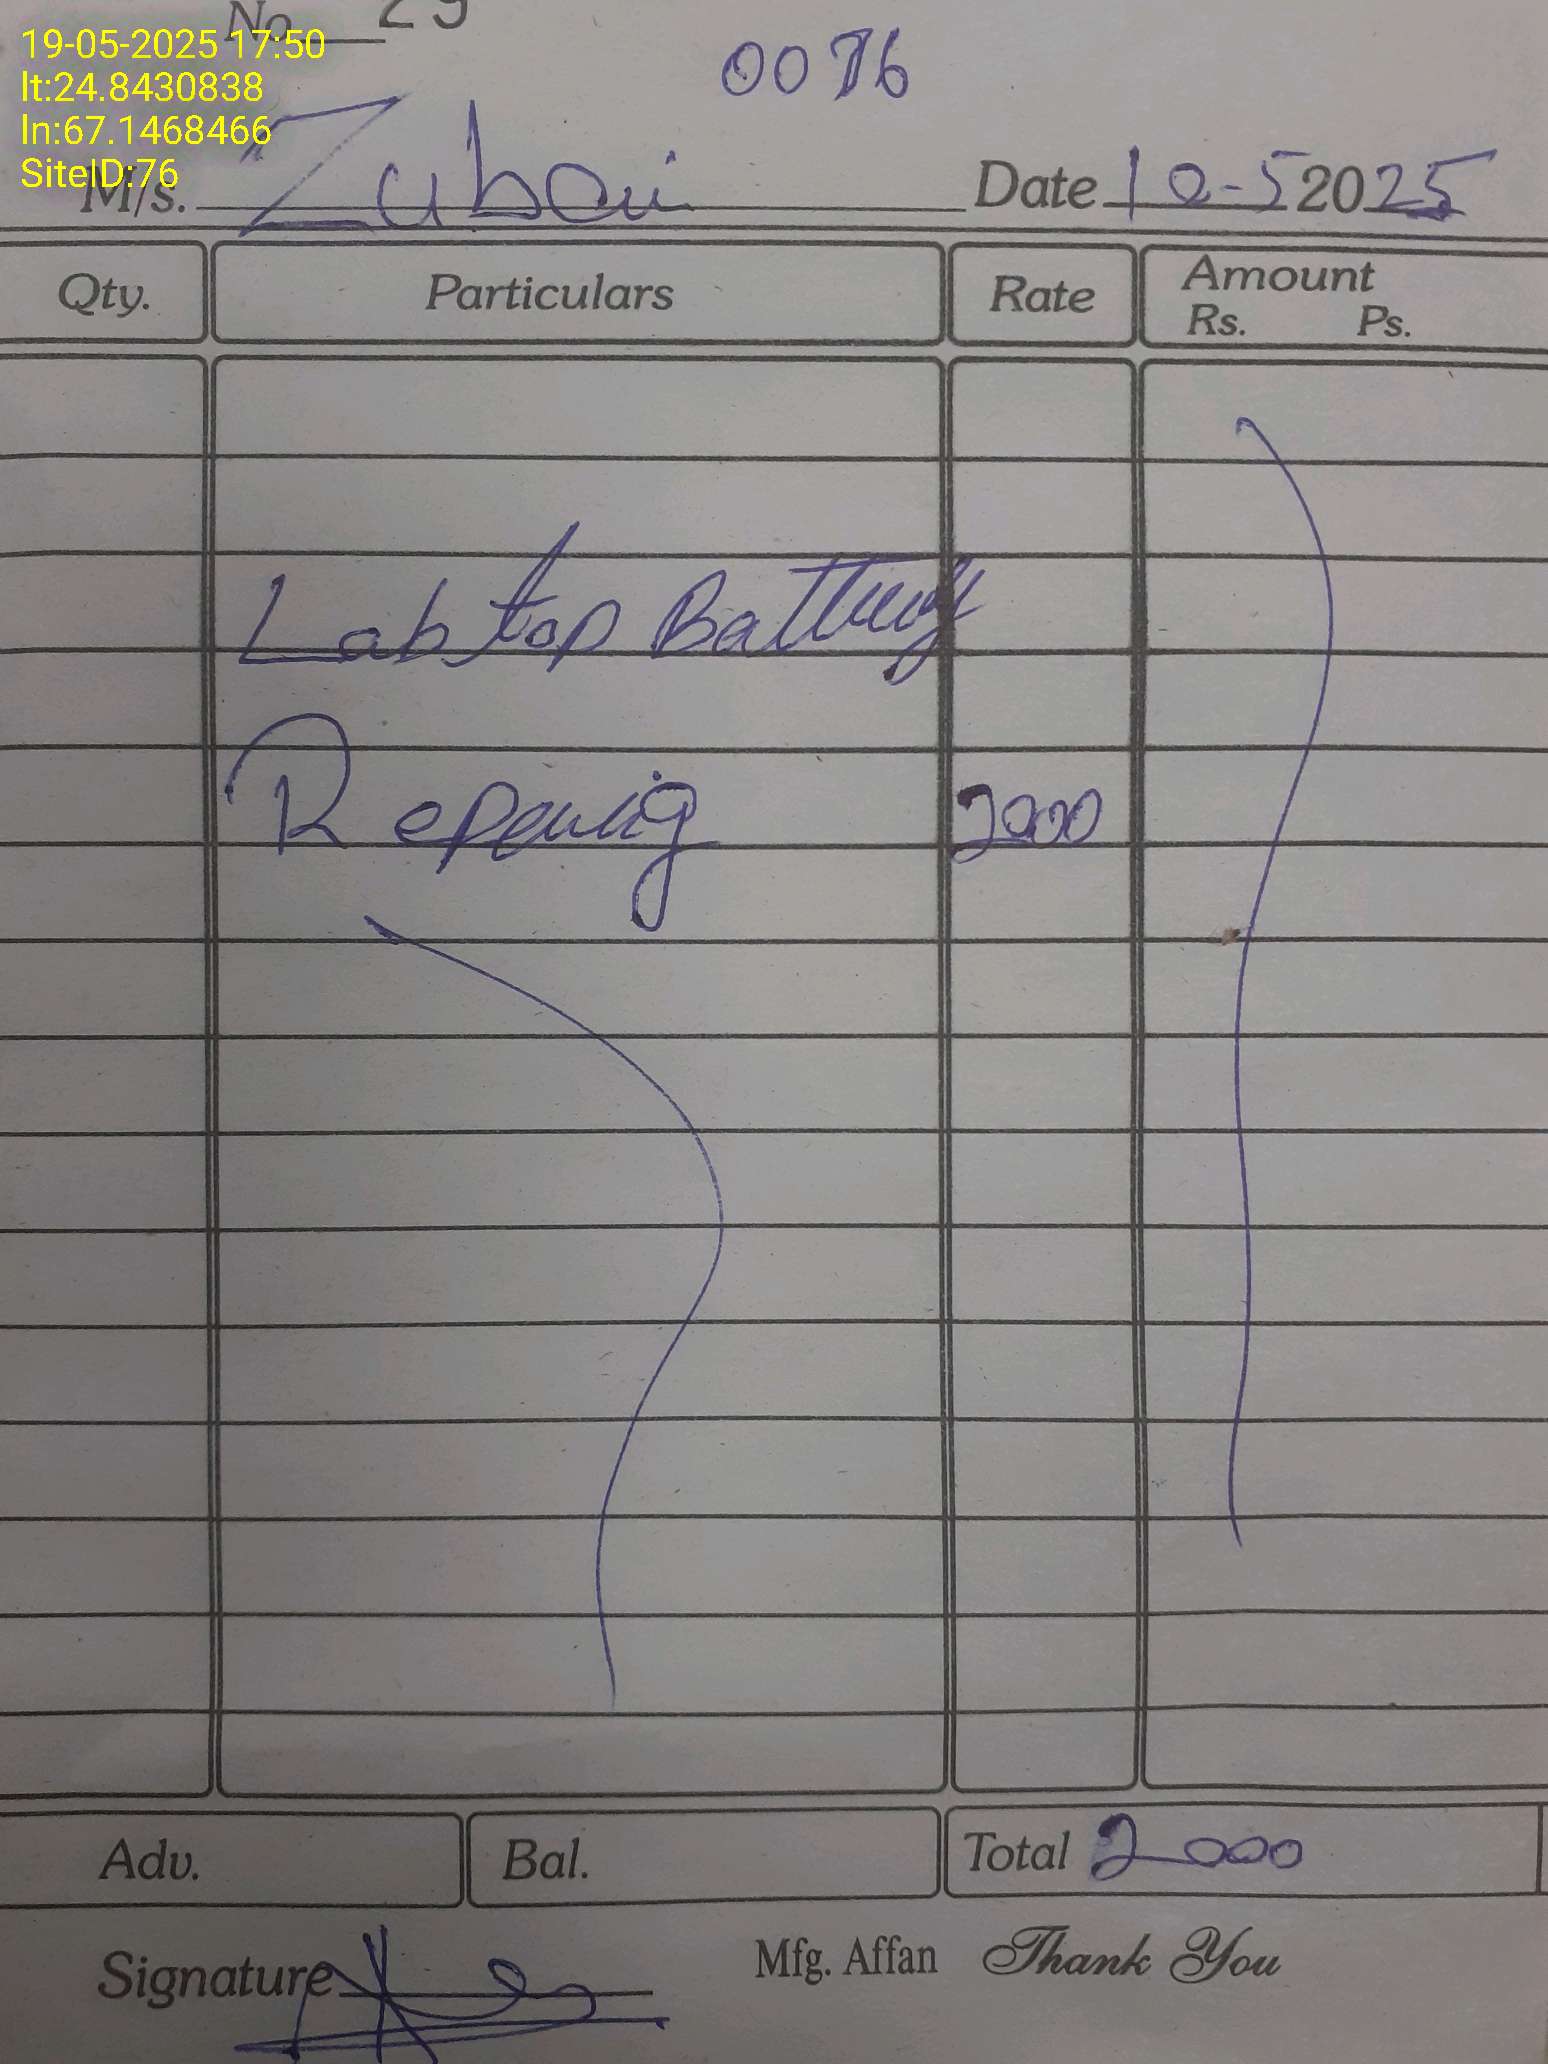 No. 29
19-05-2025 17:50
0076
lt:24.8430838
ln:67.1468466
SiteID:76
M/s. Zubai Date 10-5 2025
Qty. Particulars Rate Amount
Rs. Ps.
Labtop Battery
Repairig 2000
Adv. Bal. Total 2000
Signature Mfg. Affan Thank You